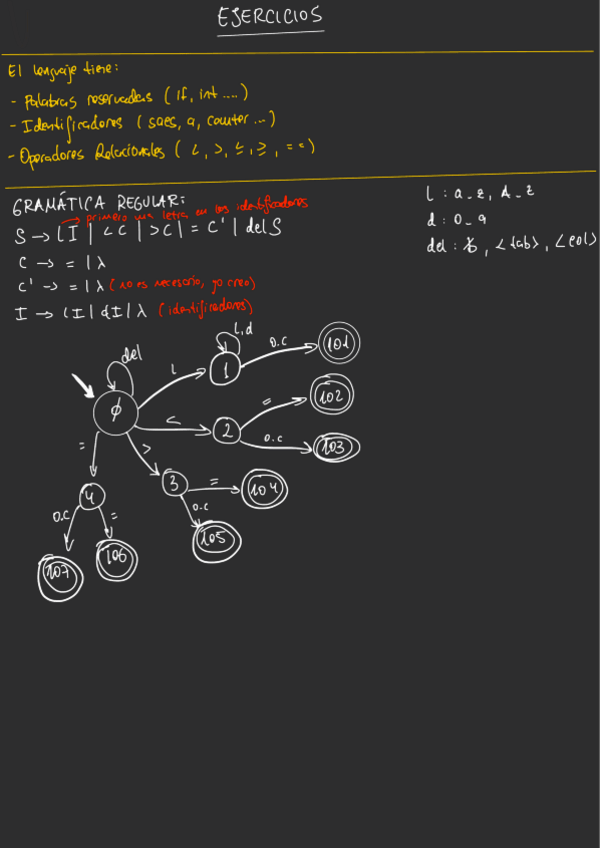 EJERCICIOS
El lenguaje tiene:
- Palabras reservadas ( if, int ....)
- Identificadores ( saes, a, counter ...)
- Operadores Relacionales ( <, >, ≤, ≥, = = )
GRAMÁTICA REGULAR:
→ primero una letra en los identificadores
S → l I | < C | > C | = C' | del S
C → = | λ
C' → = | λ (no es necesario, yo creo)
I → l I | d I | λ (identificadores)
l : a_z, A_Z
d : 0_9
del : ƀ, <tab>, <eol>
del
l,d
l
o.c
1
101
∅
<
2
=
102
o.c
103
=
>
3
=
104
o.c
105
4
o.c
=
107
106